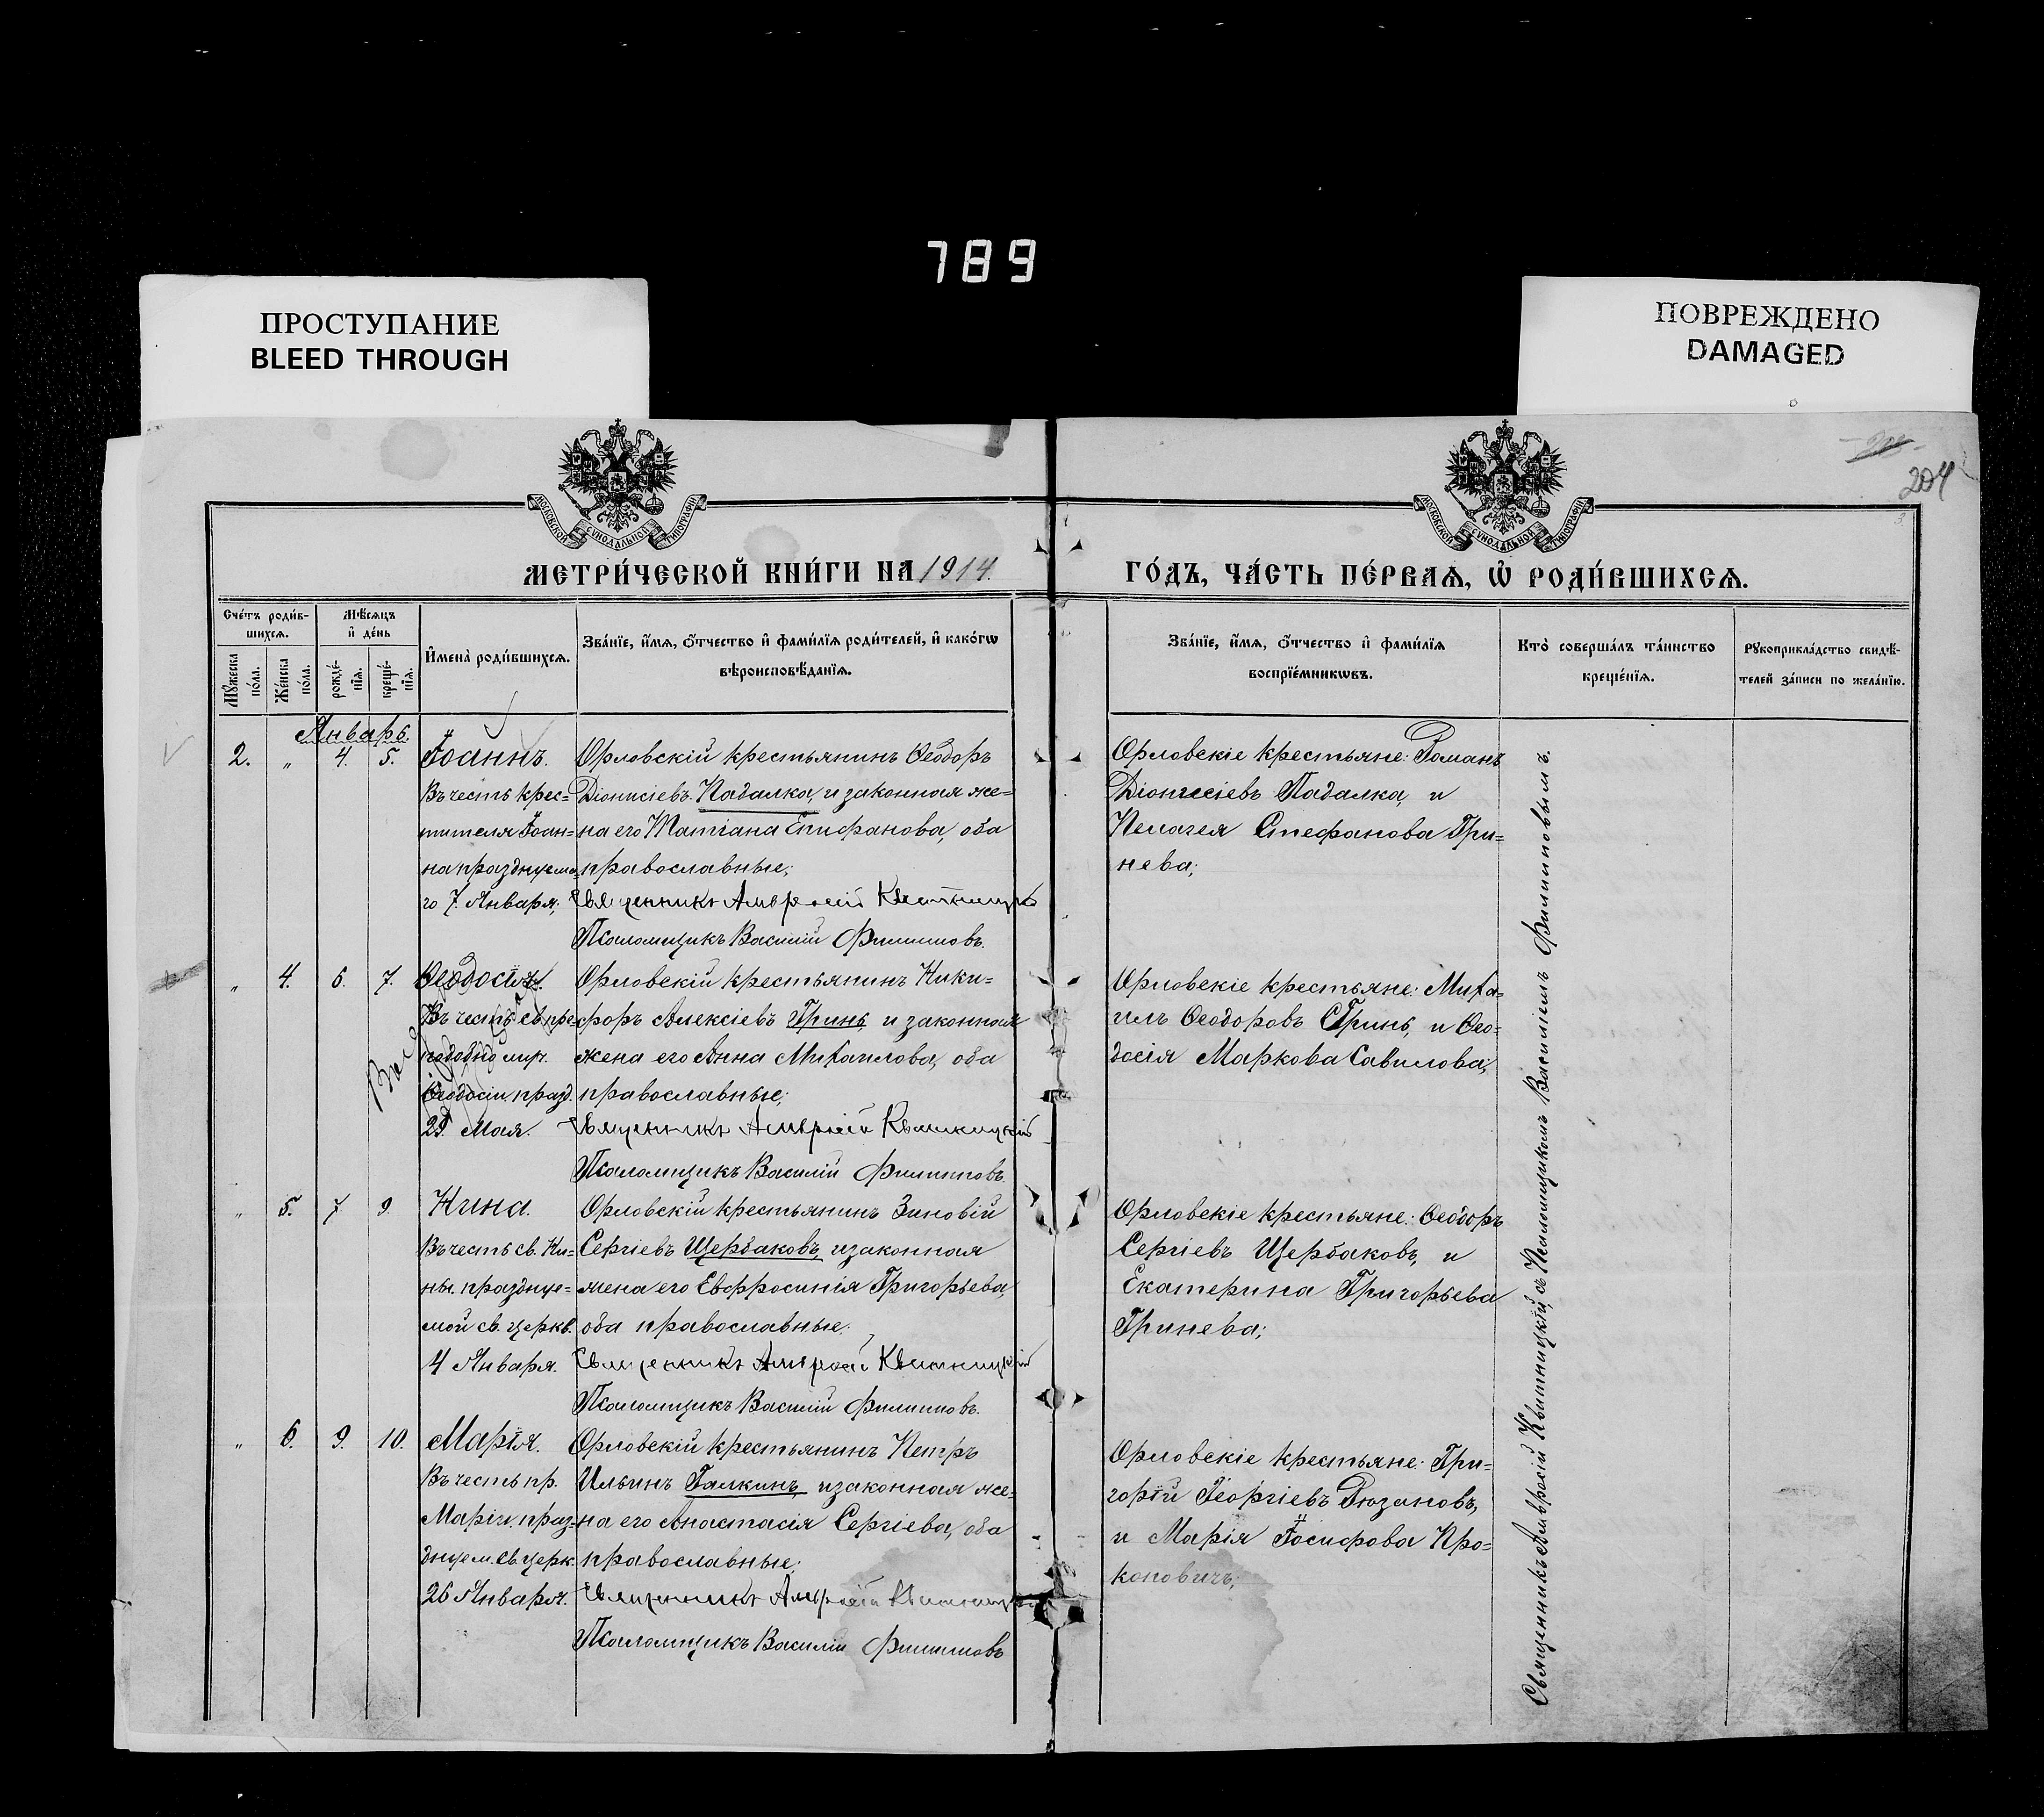 789
ПРОСТУПАНИЕ
BLEED THROUGH
ПОВРЕЖДЕНО
DAMAGED
204
МОСКОВСКОЙ СѴНОДАЛЬНОЙ ТИПОГРАФІИ
МОСКОВСКОЙ СѴНОДАЛЬНОЙ ТИПОГРАФІИ
МЕТРИ́ЧЕСКОЙ КНИ́ГИ НА 1914.
ГО́ДЪ, ЧА́СТЬ ПЕ́РВАѦ, Ѡ҆ РОДИ́ВШИХСѦ.
Сче́тъ роди́в-
шихсѧ.
Мѣ́сѧцъ
и҆ де́нь
Мꙋ́жеска по́ла.
Же́нска по́ла.
рожде́-
нїѧ.
креще́-
нїѧ.
И҆мена̀ роди́вшихсѧ.
Зва́нїе, и҆́мѧ, ѻ҆́тчество и҆ фами́лїѧ роди́телей, и҆ како́гѡ
вѣроисповѣ́данїѧ.
Зва́нїе, и҆́мѧ, ѻ҆́тчество и҆ фами́лїѧ
воспрїе́мникѡвъ.
Кто̀ соверша́лъ та́инство
креще́нїѧ.
Рꙋкоприкла́дство свидѣ́-
телей за́писи по жела́нїю.
Январь.
2. „ 4. 5. Іоаннъ.
Въ честь крес=
тителя Іоан=
на празднуема=
го 7. Января;
Орловскій крестьянинъ Ѳеодоръ
Діонисіевъ Падалка, и законная же=
на его Татіана Епифанова, оба
православные;
Священникъ Амвросій Квитницкій
Псаломщикъ Василій Филипповъ.
Орловскіе крестьяне: Романъ
Діонисіевъ Падалка, и
Пелагея Стефанова Гри=
нева;
„ 4. 6. 7. Ѳеодосія.
Въ честь св. пре=
подобно муч.
Ѳеодосіи празд.
29. Мая.
Орловскій крестьянинъ Ники=
форъ Алексіевъ Гринь, и законная
жена его Анна Михаилова, оба
православные;
Священникъ Амвросій Квитницкій
Псаломщикъ Василій Филипповъ.
Орловскіе крестьяне: Миха=
илъ Ѳеодоровъ Гринь, и Ѳео=
досія Маркова Савилова;
„ 5. 7 9. Нина.
Въ честь св. Ни=
ны. празднуе=
мой св. церкв.
4 Января.
Орловскій крестьянинъ Зиновій
Сергіевъ Щербаковъ, и законная
жена его Евфросинія Григорьева,
оба православные;
Священникъ Амвросій Квитницкій
Псаломщикъ Василій Филипповъ.
Орловскіе крестьяне: Ѳеодоръ
Сергіевъ Щербаковъ, и
Екатерина Григорьева
Гринева;
„ 6. 9. 10. Марія.
Въ честь пр.
Маріи. праз=
днуем. св. церк.
26 Января.
Орловскій крестьянинъ Петръ
Ильинъ Галкинъ, и законная же=
на его Анастасія Сергіева, оба
православные;
Священникъ Амвросій Квитницкій
Псаломщикъ Василій Филипповъ
Орловскіе крестьяне: Гри=
горій Георгіевъ Рюзановъ,
и Марія Іосифова Про=
коповичъ;
Священникъ Амвросій Квитницкій, съ Псаломщикомъ Василіемъ Филипповымъ.